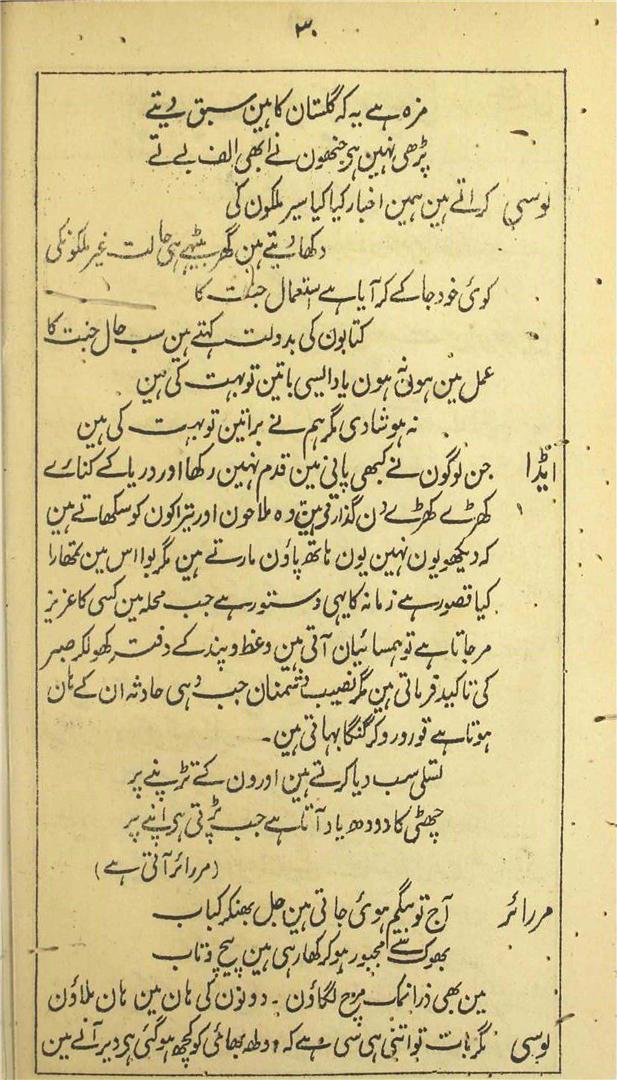 ۳۰
مزہ ہے یہ کہ گلستان کا ہین سبق دیتے
پڑھی نہین ہی جنھون نے ابھی الف بے تے
لوسی کراتے ہین ہمین اخبار کیا کیا سیر ملکون کی
دکھا دیتے ہین گھر بیٹھے ہی حالت غیر ملکونکی
کوئی خود جا کے کر آیا ہے استعمال جنت کا
کتابون کی بدولت کہتے ہین سب حال جنت کا
عمل مین ہون نہ ہون یاد ایسی باتین تو بہت کی ہین
نہ ہو شادی مگر ہم نے براتین تو بہت کی ہین
ایڈا جن لوگون نے کبھی پانی مین قدم نہین رکھا اور دریا کے کنارے
کھڑے کھڑے دن گذارتے ہین وہ ملاحون اور تیراکون کو سکھاتے ہین
کہ دیکھو یون نہین یون ہاتھ پاؤن مارتے ہین مگر بوا اس مین تمھارا
کیا قصور ہے زمانہ کا یہی دستور ہے جب محلہ مین کسی کا عزیز
مر جاتا ہے تو ہمسائیان آتی ہین وعظ و پند کے دفتر کھولکر صبر
کی تاکید فرماتی ہین مگر نصیب دشمنان جب وہی حادثہ ان کے ہان
ہوتا ہے تو رو رو کر گنگا بہاتی ہین۔
تسلی سب دیا کرتے ہین اورون کے تڑپنے پر
چھٹی کا دودھ یاد آتا ہے جب پڑتی ہی اپنے پر
(مررائر آتی ہے)
مررائر آج تو بیگم ہوئی جاتی ہین جل بھنکر کباب
بھوک سے مجبور ہوکر کھا رہی ہین پیچ و تاب
مین بھی ذرا نمک مرچ لگاؤن۔ دونون کی ہان مین ہان ملاؤن
لوسی مگر بات تو اتنی ہی سی ہے کہ دولھ بھائی کو کچھ ہو گئی ہی دیر آنے مین